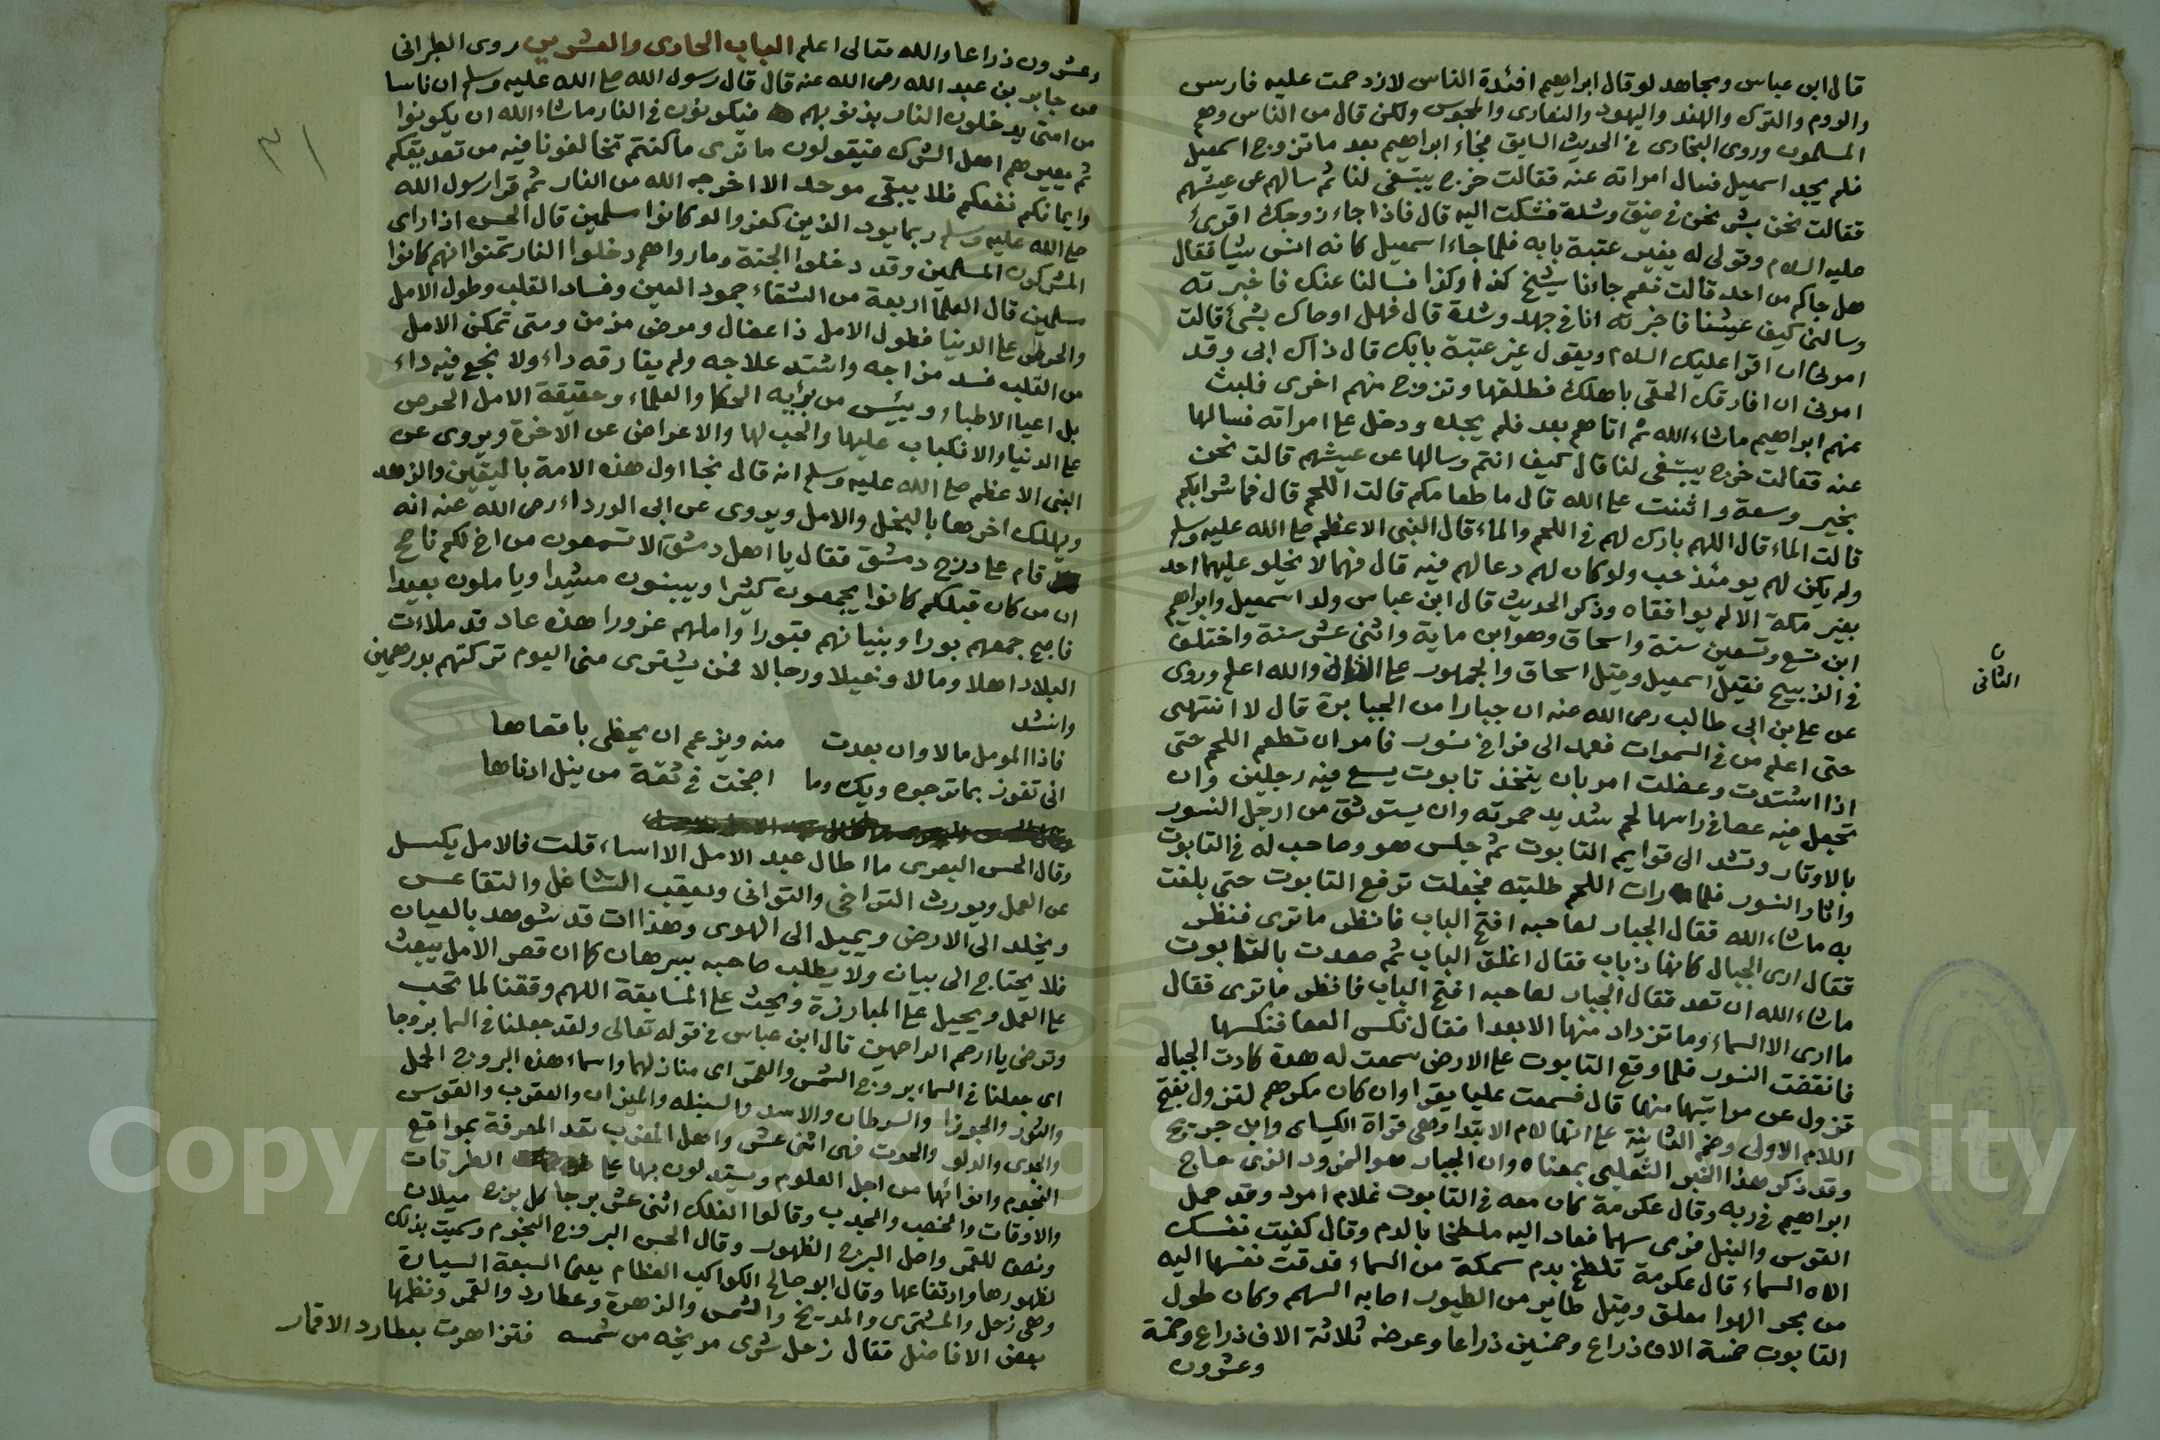 قال ابن عباس ومجاهد لو قال ابراهيم افئدة الناس لازدحمت عليه فارس
والروم والترك والهند واليهود والنصارى والمجوس ولكن قال من الناس وهم
المسلمون وروى البخارى فى الحديث السابق فجاء ابراهيم بعد ما تزوج اسمعيل
فلم يجد اسمعيل فسال امراته عنه فقالت خرج يبتغى لنا ثم سالهم عن عيشهم
فقالت نحن بشر نحن فى ضيق وشدة فشكت اليه قال فاذا جاء زوجك اقرئ
عليه السلام وقولى له يغير عتبة بابه فلما جاء اسمعيل كانه انس شيا فقال
هل جاكم من احد قالت نعم جاءنا شيخ كذا وكذا فسالنا عنك فاخبرته
وسالنى كيف عيشنا فاخبرته انا فى جهد وشدة قال فهل اوصاك بشئ قالت
امرنى ان اقرا عليك السلام ويقول غير عتبة بابك قال ذاك ابى وقد
امرنى ان افارقك الحقى باهلك فطلقها وتزوج منهم اخرى فلبث
عنهم ابراهيم ما شاء الله ثم اتاهم بعد فلم يجده ودخل على امراته فسالها
عنه فقالت خرج يبتغى لنا قال كيف انتم وسالها عن عيشهم قالت نحن
بخير وسعة واثنت على الله قال ما طعامكم قالت اللحم قال فما شرابكم
قالت الماء قال اللهم بارك لهم فى اللحم والماء قال النبى الاعظم صلى الله عليه وسلم
ولم يكن لهم يومئذ حب ولو كان لهم دعا لهم فيه قال فهما لا يخلو عليهما احد
بغير مكة الا لم يوافقاه وذكر الحديث قال ابن عباس ولد اسمعيل وابراهيم
ابن تسع وتسعين سنة واسحاق وهو ابن ماية واثنى عشر سنة واختلف
فى الذبيح فقيل اسمعيل وقيل اسحاق والجمهور على الثانى والله اعلم وروى
الثانى
عن على بن ابى طالب رضى الله عنه ان جبارا من الجبابرة قال لا انتهى
حتى اعلم من فى السموات فعمد الى فراخ نسور فامر ان تطعم اللحم حتى
اذا اشتدت وعضلت امر بان يتخذ تابوت يسع فيه رجلين وان
تجعل فيه عصا فى راسها لحم شديد حمرته وان يستوثق من ارجل النسور
بالاوتار وتشد الى قوايم التابوت ثم جلس هو وصاحب له فى التابوت
واثار النسور فلما رات اللحم طلبته فجعلت ترفع التابوت حتى بلغت
به ما شاء الله فقال الجبار لصاحبه افتح الباب فانظر ما ترى فنظر
فقال ارى الجبال كانها ذباب فقال اغلق الباب ثم صعدت بالتابوت
ما شاء الله ان تصعد فقال الجبار لصاحبه افتح الباب فانظر ما ترى فقال
ما ارى الا السماء وما تزداد منها الا بعدا فقال نكس العصا فنكسها
فانقضت النسور فلما وقع التابوت على الارض سمعت له هدة كادت الجبال
تزول عن مراتبها منها قال فسمعت عليا يقرا وان كان مكرهم لتزول بفتح
اللام الاولى وضم الثانية على انها لام الابتدا وهى قراة الكساى وابن جريج
وقد ذكر هذا الخبر الثعلبى بمعناه وان الجبار هو النمرود الذى حاج
ابراهيم فى ربه وقال عكرمة كان معه فى التابوت غلام امرد وقد حمل
القوس والنبل فرمى سهما فعاد اليه ملطخا بالدم وقال كفيت نفسك
الاه السماء قال عكرمة تلطخ بدم سمكة من السماء قذفت نفسها اليه
من بحر الهوا معلق وقيل طاير من الطيور اصابه السهم وكان طول
التابوت خمسة الاف ذراع وخمسين ذراعا وعرضه ثلاثة الاف ذراع وخمسة
وعشرون
وعشرون ذراعا والله تعالى اعلم الباب الحادى والعشرين روى الطبرانى
من جابر بن عبد الله رضى الله عنه قال قال رسول الله صلى الله عليه وسلم ان ناسا
من امتى يدخلون النار بذنوبهم فيكونون فى النار ما شاء الله ان يكونوا
ثم يعيرهم اهل الشرك فيقولون ما نرى ما كنتم تخالفونا فيه من تصديقكم
وايمانكم نفعكم فلا يبقى موحد الا اخرجه الله من النار ثم قرا رسول الله
صلى الله عليه وسلم ربما يود الذين كفروا لو كانوا مسلمين قال الحسن اذا راى
المشركون المسلمين وقد دخلوا الجنة وما رواهم دخلوا النار تمنوا انهم كانوا
مسلمين قال العلما اربعة من الشقاء جمود العين وفساد القلب وطول الامل
والحرص على الدنيا فطول الامل ذا عضال ومرض مزمن ومتى تمكن الامل
من القلب فسد مزاجه واشتد علاجه ولم يفارقه داء ولا نجع فيه داء
بل اعيا الاطباء ويئس من برئيه الحكما والعلماء وحقيقة الامل الحرص
على الدنيا والانكباب عليها والحب لها والاعراض عن الاخرة ويروى عن
النبى الاعظم صلى الله عليه وسلم انه قال نجا اول هذه الامة باليقين والزهد
ويهلك اخرها بالبخل والامل ويروى عن ابى الدرداء رضى الله عنه انه
قام على درج دمشق فقال يا اهل دمشق الا تسمعون من اخ لكم ناصح
ان من كان قبلكم كانوا يجمعون كثيرا ويبنون مشيدا وياملون بعيدا
فاصبح جمعهم بورا وبنيانهم قبورا واملهم غرورا هذه عاد قد ملاءت
البلاد اهلا ومالا وخيلا ورجالا فمن يشترى منى اليوم تركتهم بدرهمين
وانشد
فاذا المومل مالا وان بعدت منه ويزعم ان يحظى باقصاها
انى تفوز بما ترجوه ويك وما اصبحت فى ثقة من نيل ادناها
وقال الحسن البصرى ما اطال عبد الامل الا اساء قلت فالامل يكسل
عن العمل ويورث التراخى والتوانى ويعقب التشاغل والتقاعس
ويخلد الى الارض ويميل الى الهوى وهذا امت قد شوهد بالعيان
فلا يحتاج الى بيان ولا يطلب صاحبه ببرهان كما ان قصر الامل يبعث
على العمل ويحيل على المبادرة ويحث على المسابقة اللهم وفقنا لما تحب
وترضى يا ارحم الراحمين قال ابن عباس فى قوله تعالى ولقد جعلنا فى السما بروجا
اى جعلنا فى السماء بروج الشمس والقمر اى منازلهما واسماء هذه البروج الحمل
والثور والجوزا والسرطان والاسد والسنبله والميزان والعقرب والقوس
والجدى والدلو والحوت فهى اثنى عشر واهل المغرب تعد المعرفة بمواقع
النجوم وانوائها من اجل العلوم ويستدلون بها على الطرقات
والاوقات والخصب والجدب وقالوا الفلك اثنى عشر برجا كل برج ميلان
ونصف للقمر واصل البرج الظهور وقال الحسن البروج النجوم وسميت بذلك
لظهورها وارتفاعها وقال ابو صالح الكواكب العظام يعنى السبعة السيارة
وهى زحل والمشترى والمريخ والشمس والزهرة وعطارد والقمر ونظمها
بعض الافاضل فقال زحل شرى مريخه من شمسه فتزاهرت بعطارد الاقمار
Copyright © King Saud University